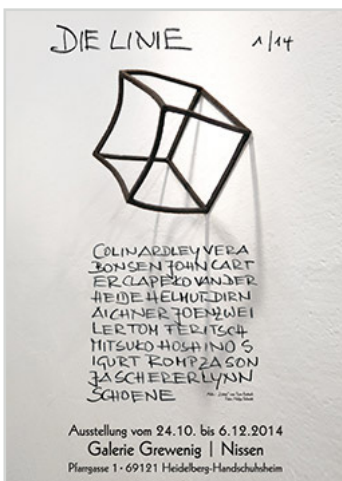 DIE LINIE 1/14
COLINARDLEYVERA
BONSENJOHNCART
ERCLAPEKOVANDER
HEIDEHELMUTDIRN
AICHNERJOENZWEI
LERTOMFERITSCH
MITSUKOHOSHINOS
IGURTROMPZASON
JASCHERERLYNN
SCHOENE
Ausstellung vom 24.10. bis 6.12.2014
Galerie Grewenig | Nissen
Pfarrgasse 1 · 69121 Heidelberg-Handschuhsheim